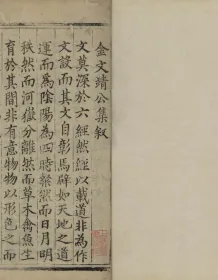 金文靖公集叙
文莫深於六經然經以載道非為作
文設而其文自彰焉辟如天地之道
運而為陰陽為四時粲然而日月明
秩然而河嶽分雖然而草木禽魚生
育於其間非有意物物以形色之而